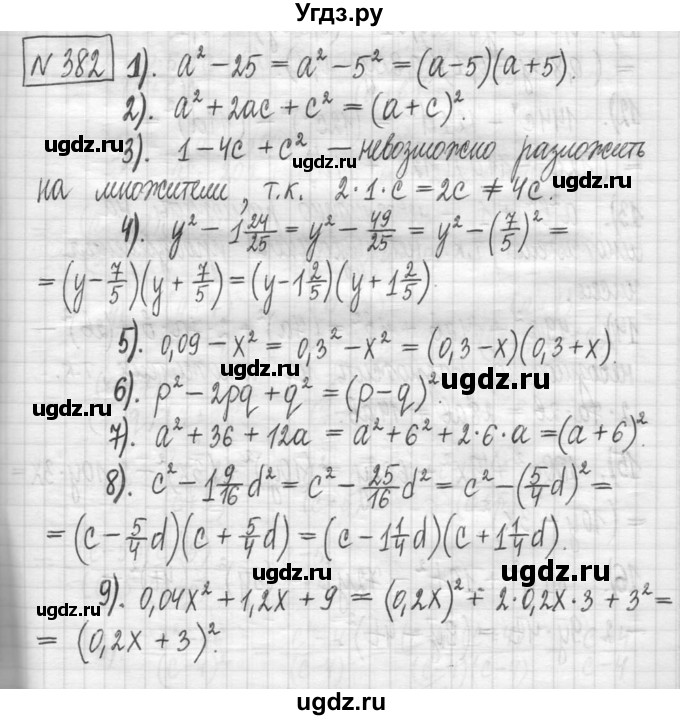 Угдз.ру
N 382 1). a² − 25 = a² − 5² = (a−5)(a+5).
2). a² + 2ac + c² = (a+c)².
ugdz.ru 3). 1 − 4c + c² − невозможно разложить
на множители, т.к. 2·1·c = 2c ≠ 4c. ugdz.ru
4). y² − 1 24/25 = y² − 49/25 = y² − (7/5)² =
= (y − 7/5)(y + 7/5) = (y − 1 2/5)(y + 1 2/5).
ugdz.ru ugdz.ru
5). 0,09 − x² = 0,3² − x² = (0,3 − x)(0,3 + x).
ugdz.ru
6). p² − 2pq + q² = (p − q)². ugdz.ru
ugdz.ru
7). a² + 36 + 12a = a² + 6² + 2·6·a = (a + 6)².
ugdz.ru
8). c² − 1 9/16 d² = c² − 25/16 d² = c² − (5/4 d)² =
ugdz.ru
= (c − 5/4 d)(c + 5/4 d) = (c − 1 1/4 d)(c + 1 1/4 d).
ugdz.ru ugdz.ru
9). 0,04x² + 1,2x + 9 = (0,2x)² + 2·0,2x·3 + 3² =
ugdz.ru
= (0,2x + 3)². ugdz.ru
ugdz.ru
ugdz.ru